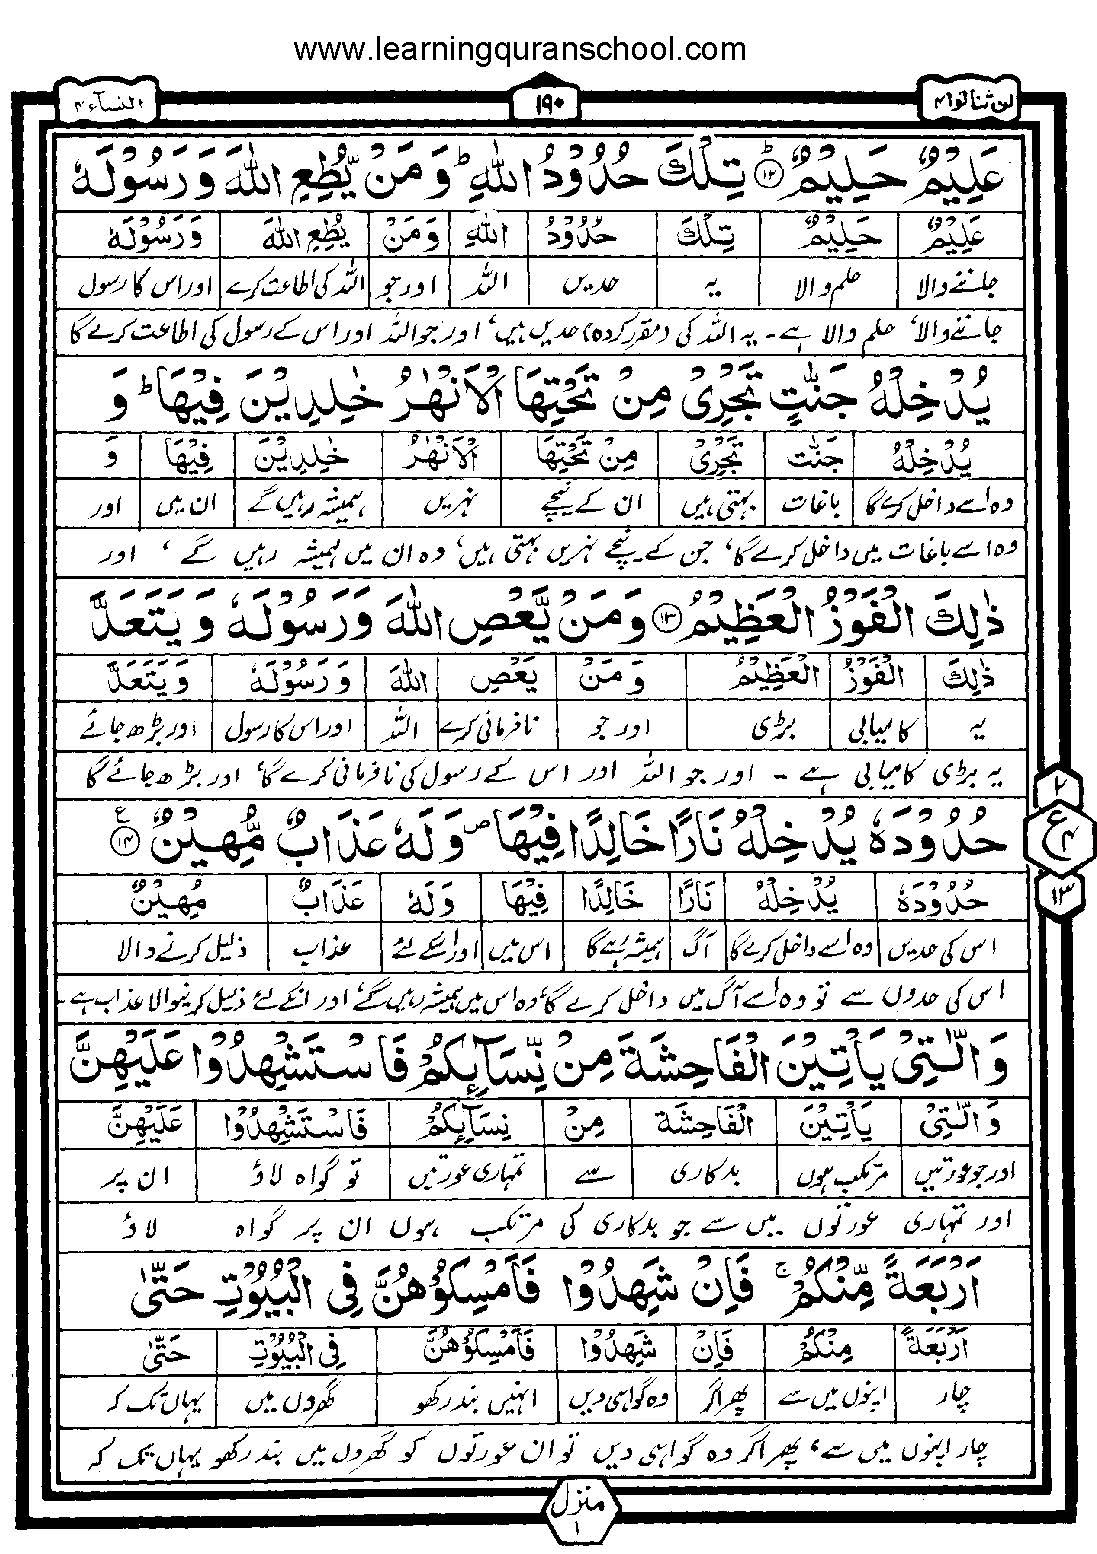 www.learningquranschool.com
لن تنالوا۴ ۱۹۰ النسآء۴
عَلِيْمٌ حَلِيْمٌ ؕ﴿۱۲﴾ تِلْكَ حُدُوْدُ اللّٰهِ ؕ وَ مَنْ يُّطِعِ اللّٰهَ وَ رَسُوْلَهٗ
عَلِيْمٌ حَلِيْمٌ تِلْكَ حُدُوْدُ اللّٰهِ وَ مَنْ يُطِعِ اللّٰهَ وَ رَسُوْلَهٗ
جاننے والا حلم والا یہ حدیں اللہ اور جو اللہ کی اطاعت کرے اور اس کا رسول
جاننے والا، حلم والا ہے۔ یہ اللہ کی (مقرر کردہ) حدیں ہیں، اور جو اللہ اور اس کے رسول کی اطاعت کرے گا
يُدْخِلْهُ جَنّٰتٍ تَجْرِيْ مِنْ تَحْتِهَا الْاَنْهٰرُ خٰلِدِيْنَ فِيْهَا ؕ وَ
يُدْخِلْهُ جَنّٰتٍ تَجْرِيْ مِنْ تَحْتِهَا الْاَنْهٰرُ خٰلِدِيْنَ فِيْهَا وَ
وہ اسے داخل کرے گا باغات بہتی ہیں ان کے نیچے نہریں ہمیشہ رہیں گے ان میں اور
وہ اسے باغات میں داخل کرے گا، جن کے نیچے نہریں بہتی ہیں، وہ ان میں ہمیشہ رہیں گے، اور
ذٰلِكَ الْفَوْزُ الْعَظِيْمُ ﴿۱۳﴾ وَ مَنْ يَّعْصِ اللّٰهَ وَ رَسُوْلَهٗ وَ يَتَعَدَّ
ذٰلِكَ الْفَوْزُ الْعَظِيْمُ وَ مَنْ يَعْصِ اللّٰهَ وَ رَسُوْلَهٗ وَ يَتَعَدَّ
یہ کامیابی بڑی اور جو نافرمانی کرے اللہ اور اس کا رسول اور بڑھ جائے
یہ بڑی کامیابی ہے۔ اور جو اللہ اور اس کے رسول کی نافرمانی کرے گا، اور بڑھ جائے گا
حُدُوْدَهٗ يُدْخِلْهُ نَارًا خَالِدًا فِيْهَا ۪ وَ لَهٗ عَذَابٌ مُّهِيْنٌ ﴿۱۴﴾ع
حُدُوْدَهٗ يُدْخِلْهُ نَارًا خَالِدًا فِيْهَا وَ لَهٗ عَذَابٌ مُهِيْنٌ
اس کی حدیں وہ اسے داخل کرے گا آگ ہمیشہ رہے گا اس میں اور اسکے لئے عذاب ذلیل کرنے والا
اس کی حدوں سے تو وہ اسے آگ میں داخل کرے گا، وہ اس میں ہمیشہ رہیں گے، اور انکے لئے ذلیل کرنیوالا عذاب ہے۔
۲
ع
۴
۱۳
وَ الّٰتِيْ يَاْتِيْنَ الْفَاحِشَةَ مِنْ نِّسَآئِكُمْ فَاسْتَشْهِدُوْا عَلَيْهِنَّ
وَ الّٰتِيْ يَاْتِيْنَ الْفَاحِشَةَ مِنْ نِسَآئِكُمْ فَاسْتَشْهِدُوْا عَلَيْهِنَّ
اور جو عورتیں مرتکب ہوں بدکاری سے تمہاری عورتیں تو گواہ لاؤ ان پر
اور تمہاری عورتوں میں سے جو بدکاری کی مرتکب ہوں ان پر گواہ لاؤ
اَرْبَعَةً مِّنْكُمْ ۚ فَاِنْ شَهِدُوْا فَاَمْسِكُوْهُنَّ فِي الْبُيُوْتِ حَتّٰى
اَرْبَعَةً مِنْكُمْ فَاِنْ شَهِدُوْا فَاَمْسِكُوْهُنَّ فِي الْبُيُوْتِ حَتّٰى
چار اپنوں میں سے پھر اگر وہ گواہی دیں انہیں بند رکھو گھروں میں یہاں تک کہ
چار اپنوں میں سے، پھر اگر وہ گواہی دیں تو ان عورتوں کو گھروں میں بند رکھو یہاں تک کہ
منزل
۱